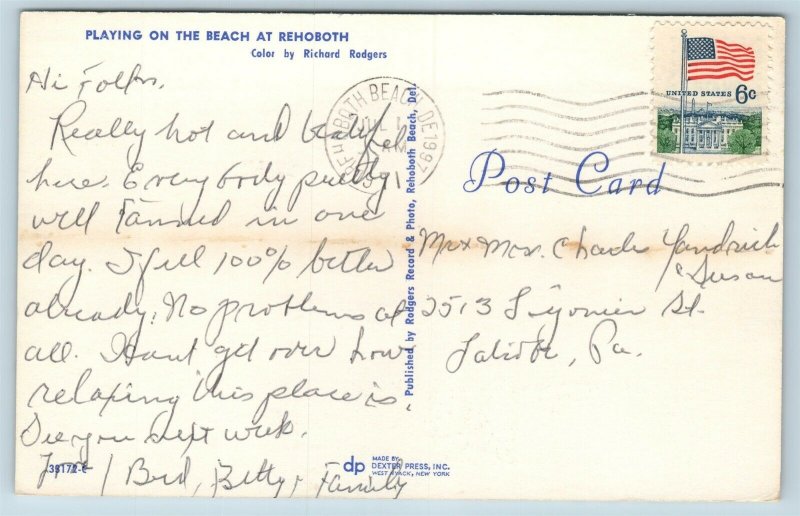 PLAYING ON THE BEACH AT REHOBOTH
Color by Richard Rodgers
Hi Folks.
Really hot and beautiful
here. Everybody pretty
well tanned in one
day. I feel 100% better
already. No problems at
all. I can't get over how
relaxing this place is.
See you next week.
Bud, Betty & Family
38172-C
dp
MADE BY
DEXTER PRESS, INC.
WEST NYACK, NEW YORK
Published by Rodgers Record & Photo, Rehoboth Beach, Del.
REHOBOTH BEACH, DE 1997
JUL
Post Card
UNITED STATES 6c
Mr & Mrs. Charles
& Susan
2513 Ligonier St.
Latrobe, Pa.